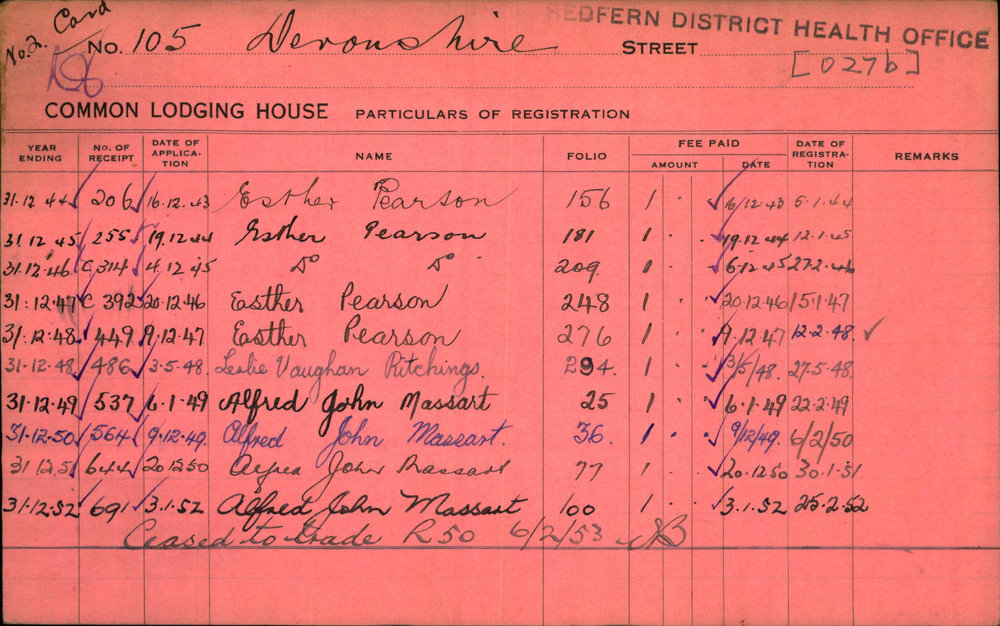 No. 2. Card
REDFERN DISTRICT HEALTH OFFICE
No. 105 Devonshire STREET
[027b]
COMMON LODGING HOUSE PARTICULARS OF REGISTRATION
YEAR ENDING NO. OF RECEIPT DATE OF APPLICA-TION NAME FOLIO FEE PAID AMOUNT DATE DATE OF REGISTRA-TION REMARKS
31.12.44 206 16.12.43 Esther Pearson 156 1 . . 16/12.43 5.1.44
31.12.45 255 19.12.44 Esther Pearson 181 1 . . 19.12.44 12.1.45
31.12.46 C 314 4.12.45 Do Do 209. 1 . . 6.12.45 27.2.46
31.12.47 C 392 20.12.46 Easther Pearson 248 1 . . 20.12.46 15.1.47
31.12.48 449 9.12.47 Esther Pearson 276 1 . . 9.12.47 12.2.48 ✓
31.12.48 486 3.5.48 Leslie Vaughan Ritchings. 294. 1 . . 3/5/48. 27.5.48.
31.12.49 537 6.1.49 Alfred John Massart 25 1 . . 6.1.49 22.2.49
31.12.50 564 9.12.49. Alfred John Massart. 36. 1 . . 9/12/49. 6/2/50
31.12.51 644 20.12.50 Alfred John Massart 77 1 . . 20.12.50 30.1.51
31.12.52 691 3.1.52 Alfred John Massart 100 1 . . 3.1.52 25.2.52
Ceased to trade R50 6/2/53